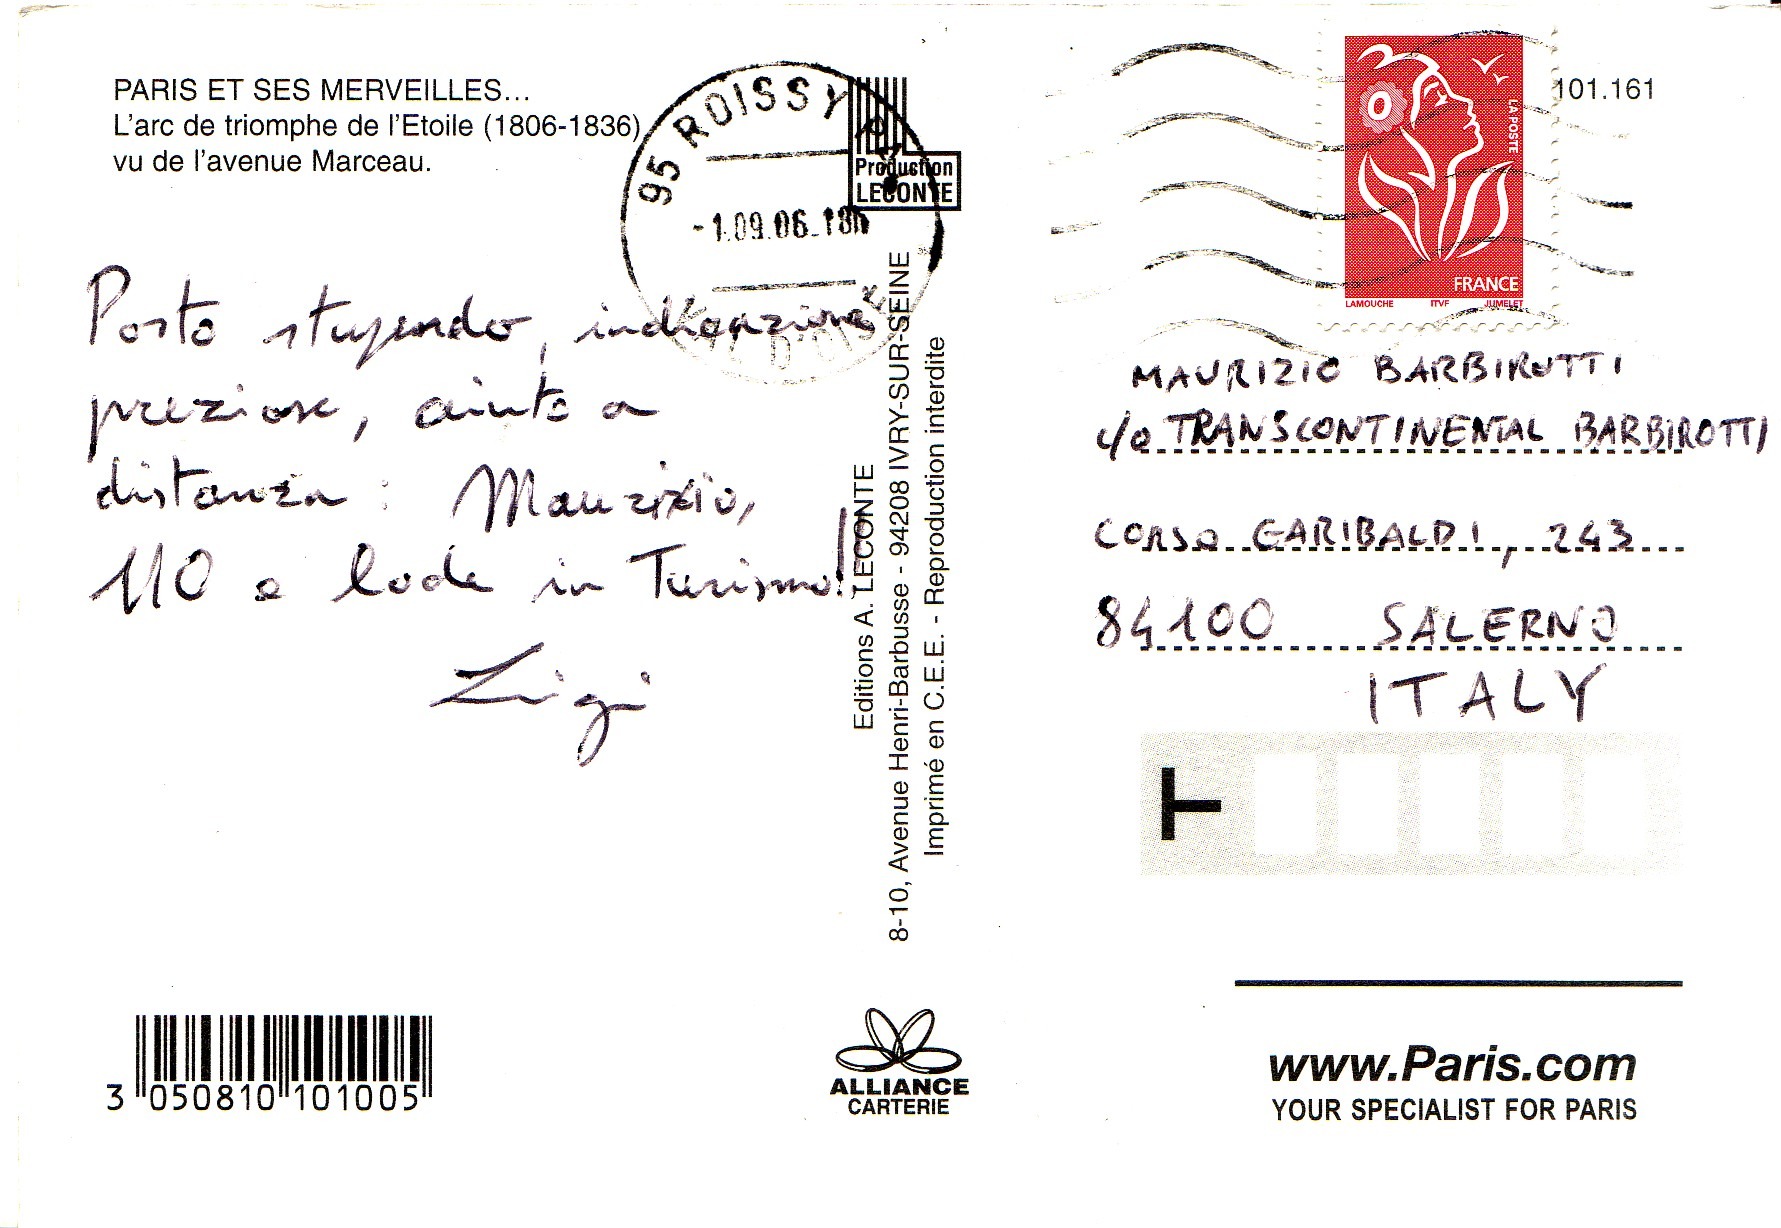 PARIS ET SES MERVEILLES...
L'arc de triomphe de l'Etoile (1806-1836)
vu de l'avenue Marceau.
95 ROISSY
-1.09.06_18h
VAL D'OISE
Production
LECONTE
LA POSTE
FRANCE
LAMOUCHE ITVF JUMELET
101.161
Posto stupendo, indicazione
preziose, aiuto a
distanza: Maurizio,
110 e lode in Turismo!
Gigi
Editions A. LECONTE
8-10, Avenue Henri-Barbusse - 94208 IVRY-SUR-SEINE
Imprimé en C.E.E. - Reproduction interdite
MAURIZIO BARBIROTTI
c/o TRANSCONTINENTAL BARBIROTTI
CORSO GARIBALDI, 243
84100 SALERNO
ITALY
T
3 050810 101005
ALLIANCE
CARTERIE
www.Paris.com
YOUR SPECIALIST FOR PARIS